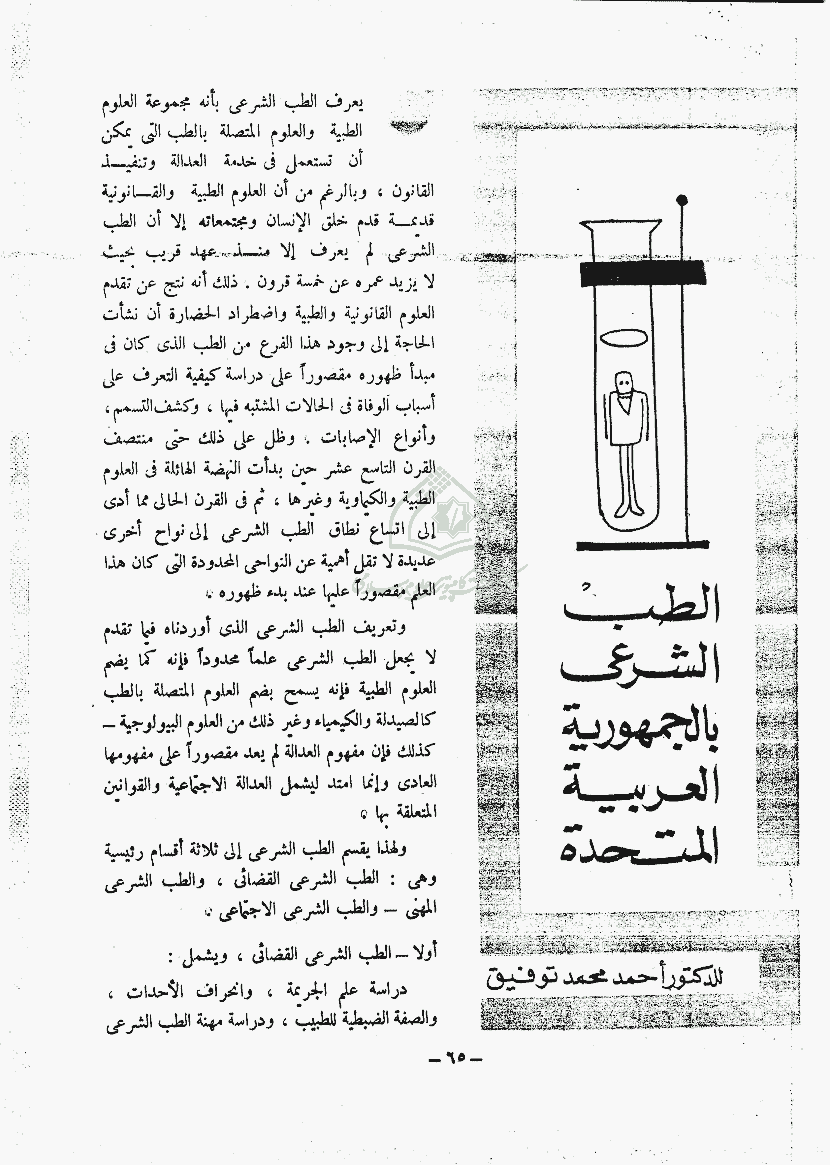 الطب
الشرعى
بالجمهورية
العربية
المتحدة
للدكتور أحمد محمد توفيق
يعرف الطب الشرعى بأنه مجموعة العلوم
الطبية والعلوم المتصلة بالطب التى يمكن
أن تستعمل فى خدمة العدالة وتنفيـــذ
القانون ، وبالرغم من أن العلوم الطبية والقــانونية
قديمــة قدم خلق الإنسان ومجتمعاته إلا أن الطب
الشرعى لم يعرف إلا منــذ عهد قريب بحيث
لا يزيد عمره عن خمسة قرون . ذلك أنه نتج عن تقدم
العلوم القانونية والطبية واضطراد الحضارة أن نشأت
الحاجة إلى وجود هذا الفرع من الطب الذى كان فى
مبدأ ظهوره مقصوراً على دراسة كيفية التعرف على
أسباب الوفاة فى الحالات المشتبه فيها ، وكشف التسمم ،
وأنواع الإصابات . وظل على ذلك حتى منتصف
القرن التاسع عشر حين بدأت النهضة الهائلة فى العلوم
الطبية والكيماوية وغيرها ، ثم فى القرن الحالى مما أدى
إلى اتساع نطاق الطب الشرعى إلى نواح أخرى
عديدة لا تقل أهمية عن النواحى المحدودة التى كان هذا
العلم مقصوراً عليها عند بدء ظهوره .
وتعريف الطب الشرعى الذى أوردناه فيما تقدم
لا يجعل الطب الشرعى علماً محدوداً فإنه كما يضم
العلوم الطبية فإنه يسمح بضم العلوم المتصلة بالطب
كالصيدلة والكيمياء وغير ذلك من العلوم البيولوجية –
كذلك فإن مفهوم العدالة لم يعد مقصوراً على مفهومها
العادى وإنما امتد ليشمل العدالة الاجتماعية والقوانين
المتعلقة بها .
ولهذا يقسم الطب الشرعى إلى ثلاثة أقسام رئيسية
وهى : الطب الشرعى القضائى ، والطب الشرعى
المهنى – والطب الشرعى الاجتماعى .
أولا – الطب الشرعى القضائى ، ويشمل :
دراسة علم الجريمة ، وانحراف الأحداث ،
والصفة الضبطية للطبيب ، ودراسة مهنة الطب الشرعى
– ٦٥ –